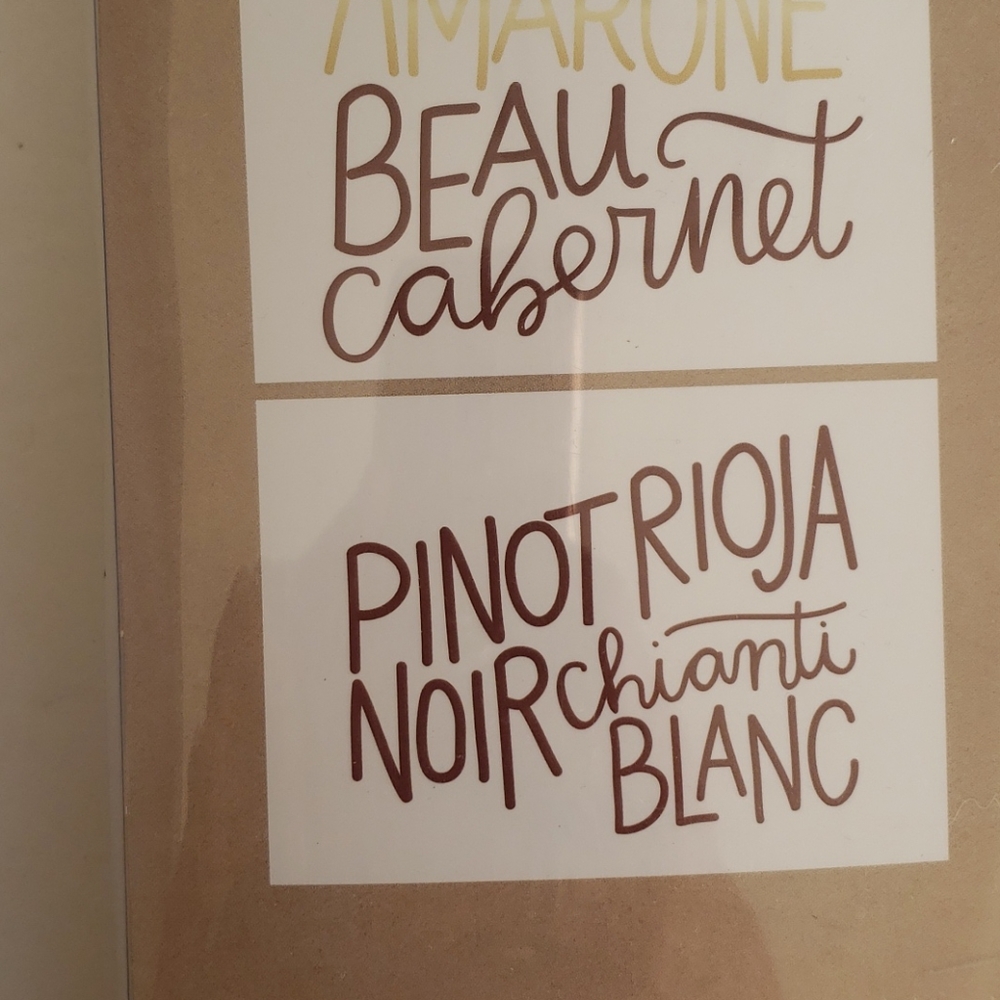 AMARONE
BEAU
cabernet
PINOT RIOJA
NOIR chianti
BLANC